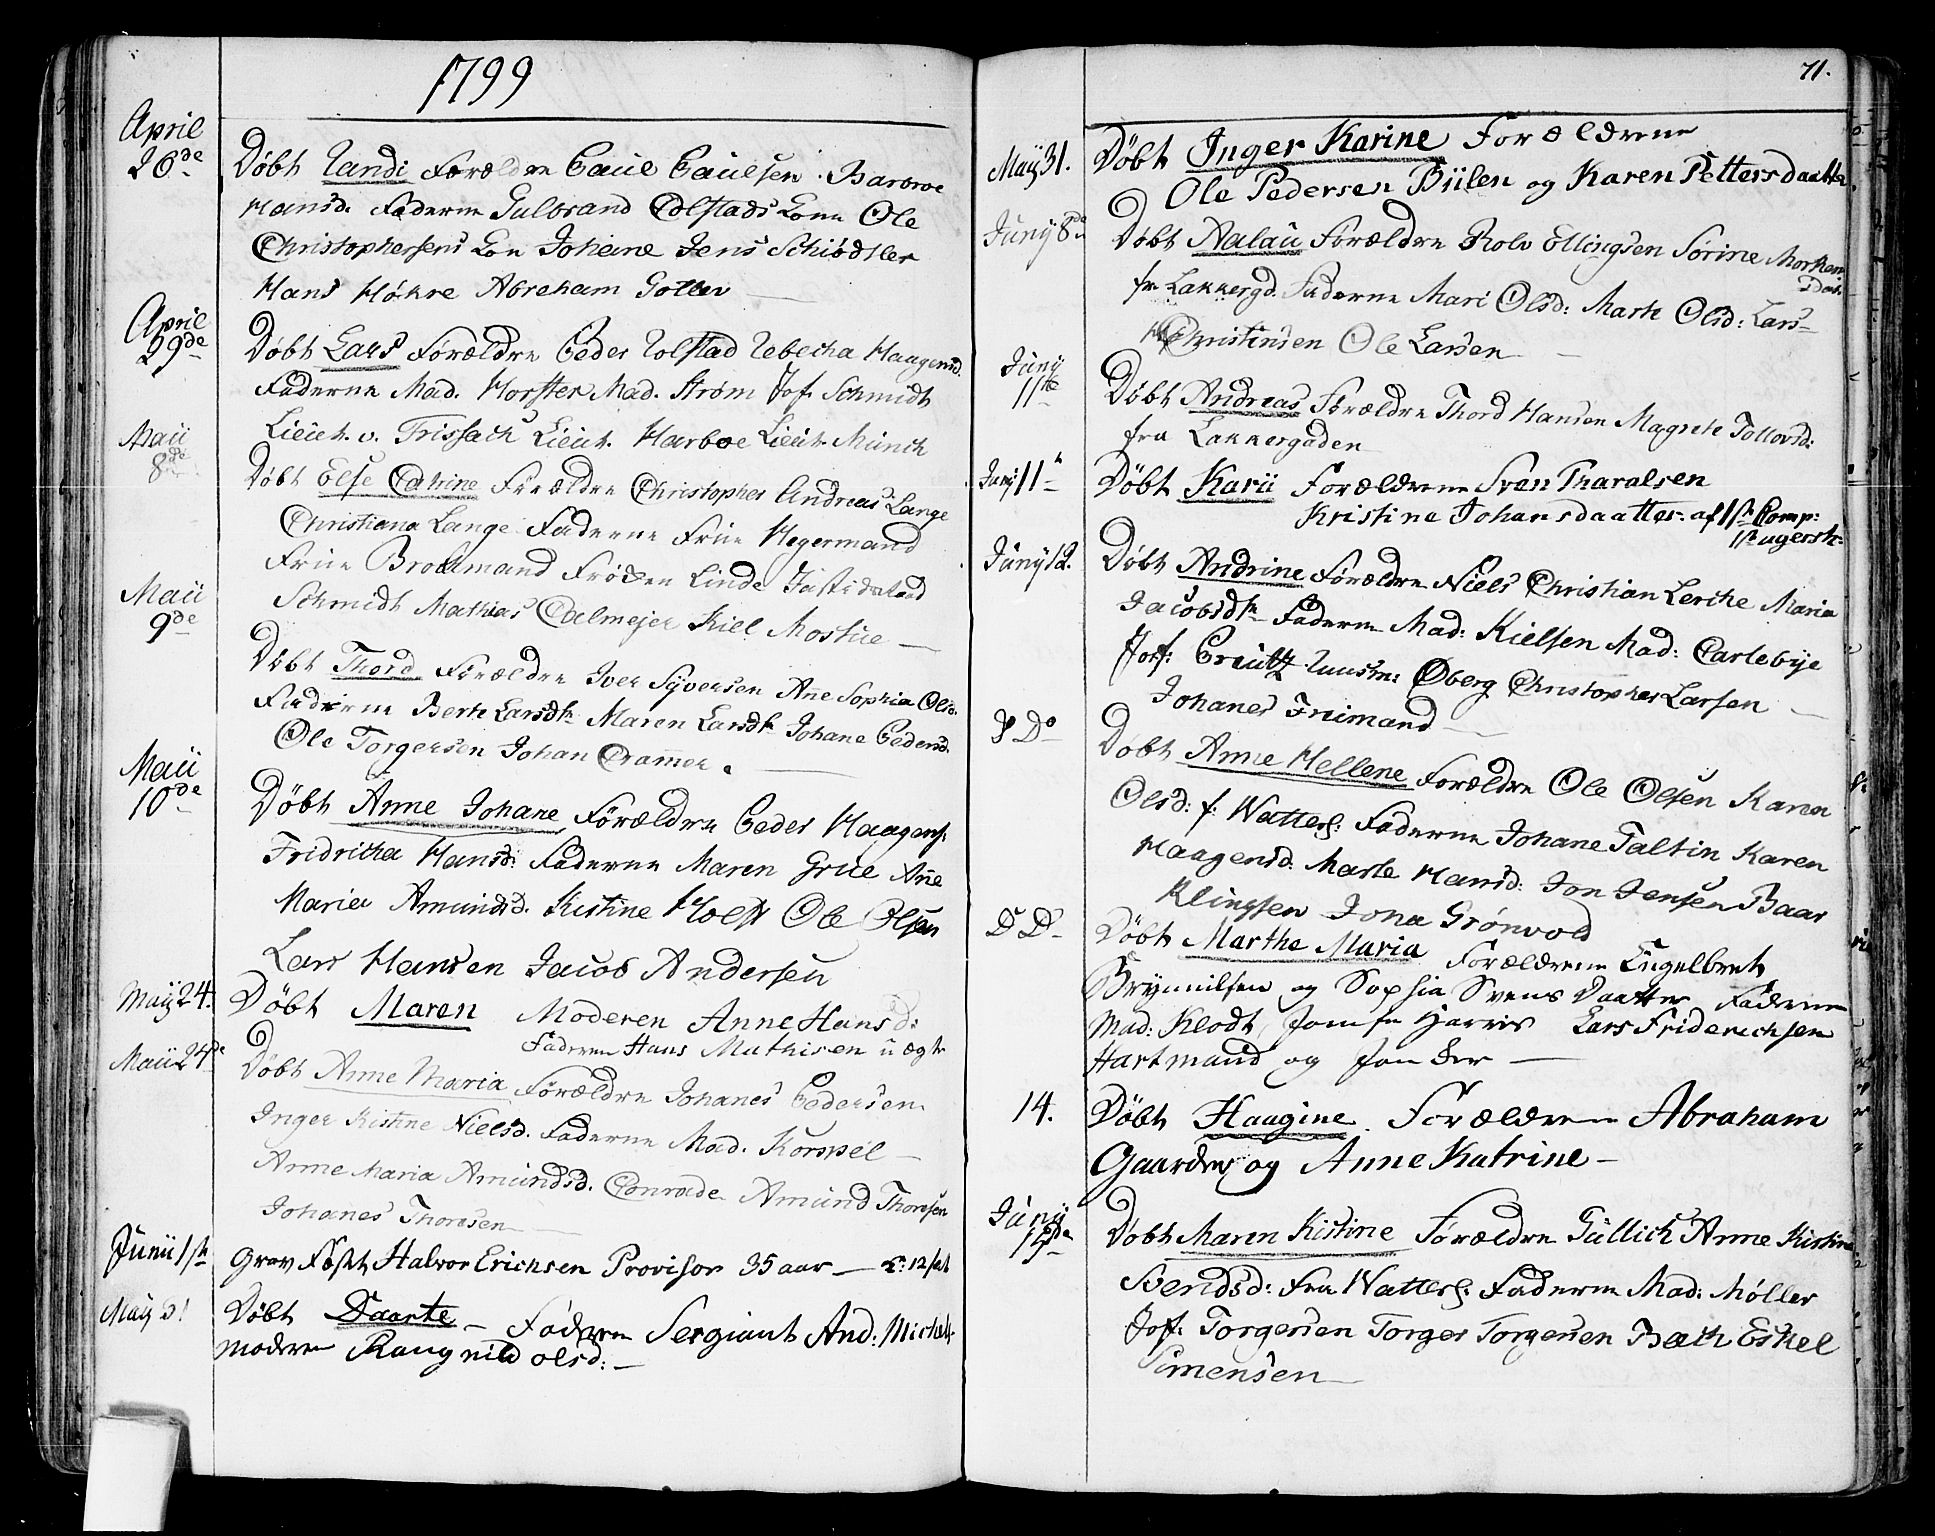 1799
April 26de
Døbt Randi Forældre Paul Paulsen Barbroe
Hansd. Fadderne Gulbrand Colstads Kone Ole
Christophersens Kon Johane Jens Schiødtler
Hans Høkre Abraham
April 29de
Døbt Lars Forældre Peder Rolstad Rebecha Haagensd.
Fadderne Mad. Horster Mad. Strøm Jof. Schmidt
Lieut. v. Trissach Lieut. Harboe Lieut. Münch
Maii 8de
Døbt Else Catrine Forældre Christopher Andreas Lange
Christiana Lange Fadderne Frue Hegermand
Frue Brockmand Frøken Linde
Schmidt Mathias Calmejer Kiel Mostue
Maii 9de
Døbt Thord Forældre Iver Syversen Anne Sophia Olsd.
Fadderne Berte Larsdtr Maren Larsdtr Johane Pedersd.
Ole Torgersen Johan Crammer.
Maii 10de
Døbt Anne Johane Forældre Peder Haagens:
Fridricha Hansd: Fadderne Maren Grue Anne
Maria Amundsd. Kistine Holst Ole Olsen
Lars Hansen Jacob Andersen
Maij 24.
Døbt Maren Moderen Anne Hansd:
Faderen Hans Mathisen uægte
Maii 24de
Døbt Anne Maria Forældre Johanes Pedersen
Inger Kistine Nielsd. Fadderne Mad. Korsvel
Anne Maria Amundsd. Conrade Amund Thoresen
Johanes Thoresen
Junii 1ste
Grav Fæst Halvor Erichsen Provisor 35 aar
May 31
Døbt Daarte Faderen Sergiant And: Michels
moderen Rangnild olsd:
71.
Maij 31.
Døbt Inger Karine Forældrene
Ole Pedersen Biilen og Karen Pettersdaatter.
Junij 8de
Døbt Aalau Forældre Rolv Ellingsen Sørine Morten
Dat.
fr. Lakkergd. Fadderne Mari Olsd: Marte Olsd: Lars
Christinsen Ole Larsen
Juny 11te
Døbt Andreas Forældre Thord Hansen Magrete Tollovsd:
fra Lakkergaden
Junij 11te
Døbt Karii Forældrene Sven Tharalsen
Kristine Johansdaatter af 1ste Comp:
Junij 12.
Døbt Andrine Forældre Niels Christian Lerche Maria
Jacobsdtr Fadderne Mad: Kielsen Mad: Carlebye
Jorf: Creutz Øberg Christopher Larsen
Johanes Friimand
Do
Døbt Anne Hellene Forældre Ole Olsen Karen
Olsd: f: Watters: Fadderne Johane Taltin Karen
Haagensd: Marte Hansd: Jon Jensen Baar
Klingsen Jona Grønvold
D D
Døbt Marthe Maria Forældrene Engelbret
Brynnilsen og Sophia Svens Daatter Fadderne
Mad: Klodt, Jomfr Harris Lars Friderichsen
Hartmand og
14.
Døbt Haagine. Forældrene Abraham
Gaarder og Anne Katrine
Junij
Døbt Maren Kistine Forældre Tullich Anne Kistine
Svendsd: Fra Watters: Fadderne Mad: Møller
Jof: Torgersen Torger Torgersen Bæth Eskel
Simensen